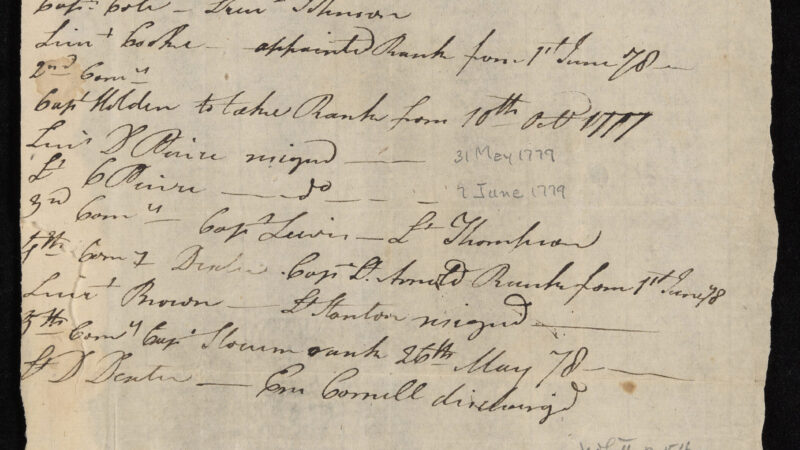 Capt. Cole – Lieut. Johnson
Lieut Cooke – appointed Rank from 1st June 78 –
2nd Comy
Capt Holden to take Rank from 10th Octr 1777
Lieut D Peirce resigned — — 31 May 1779
Lt C Peirce — do — - - 9 June 1779
3rd Comy — Capt Lewis – Lt Thompson
4th Comy Dexter Capt Lt. Arnold Rank from 1st June 78
Lieut Brown — Lt Stanton resigned —
5th Comy Capt Slocum rank 26th May 78 –
Lt D Dexter — Ens Cornell discharged